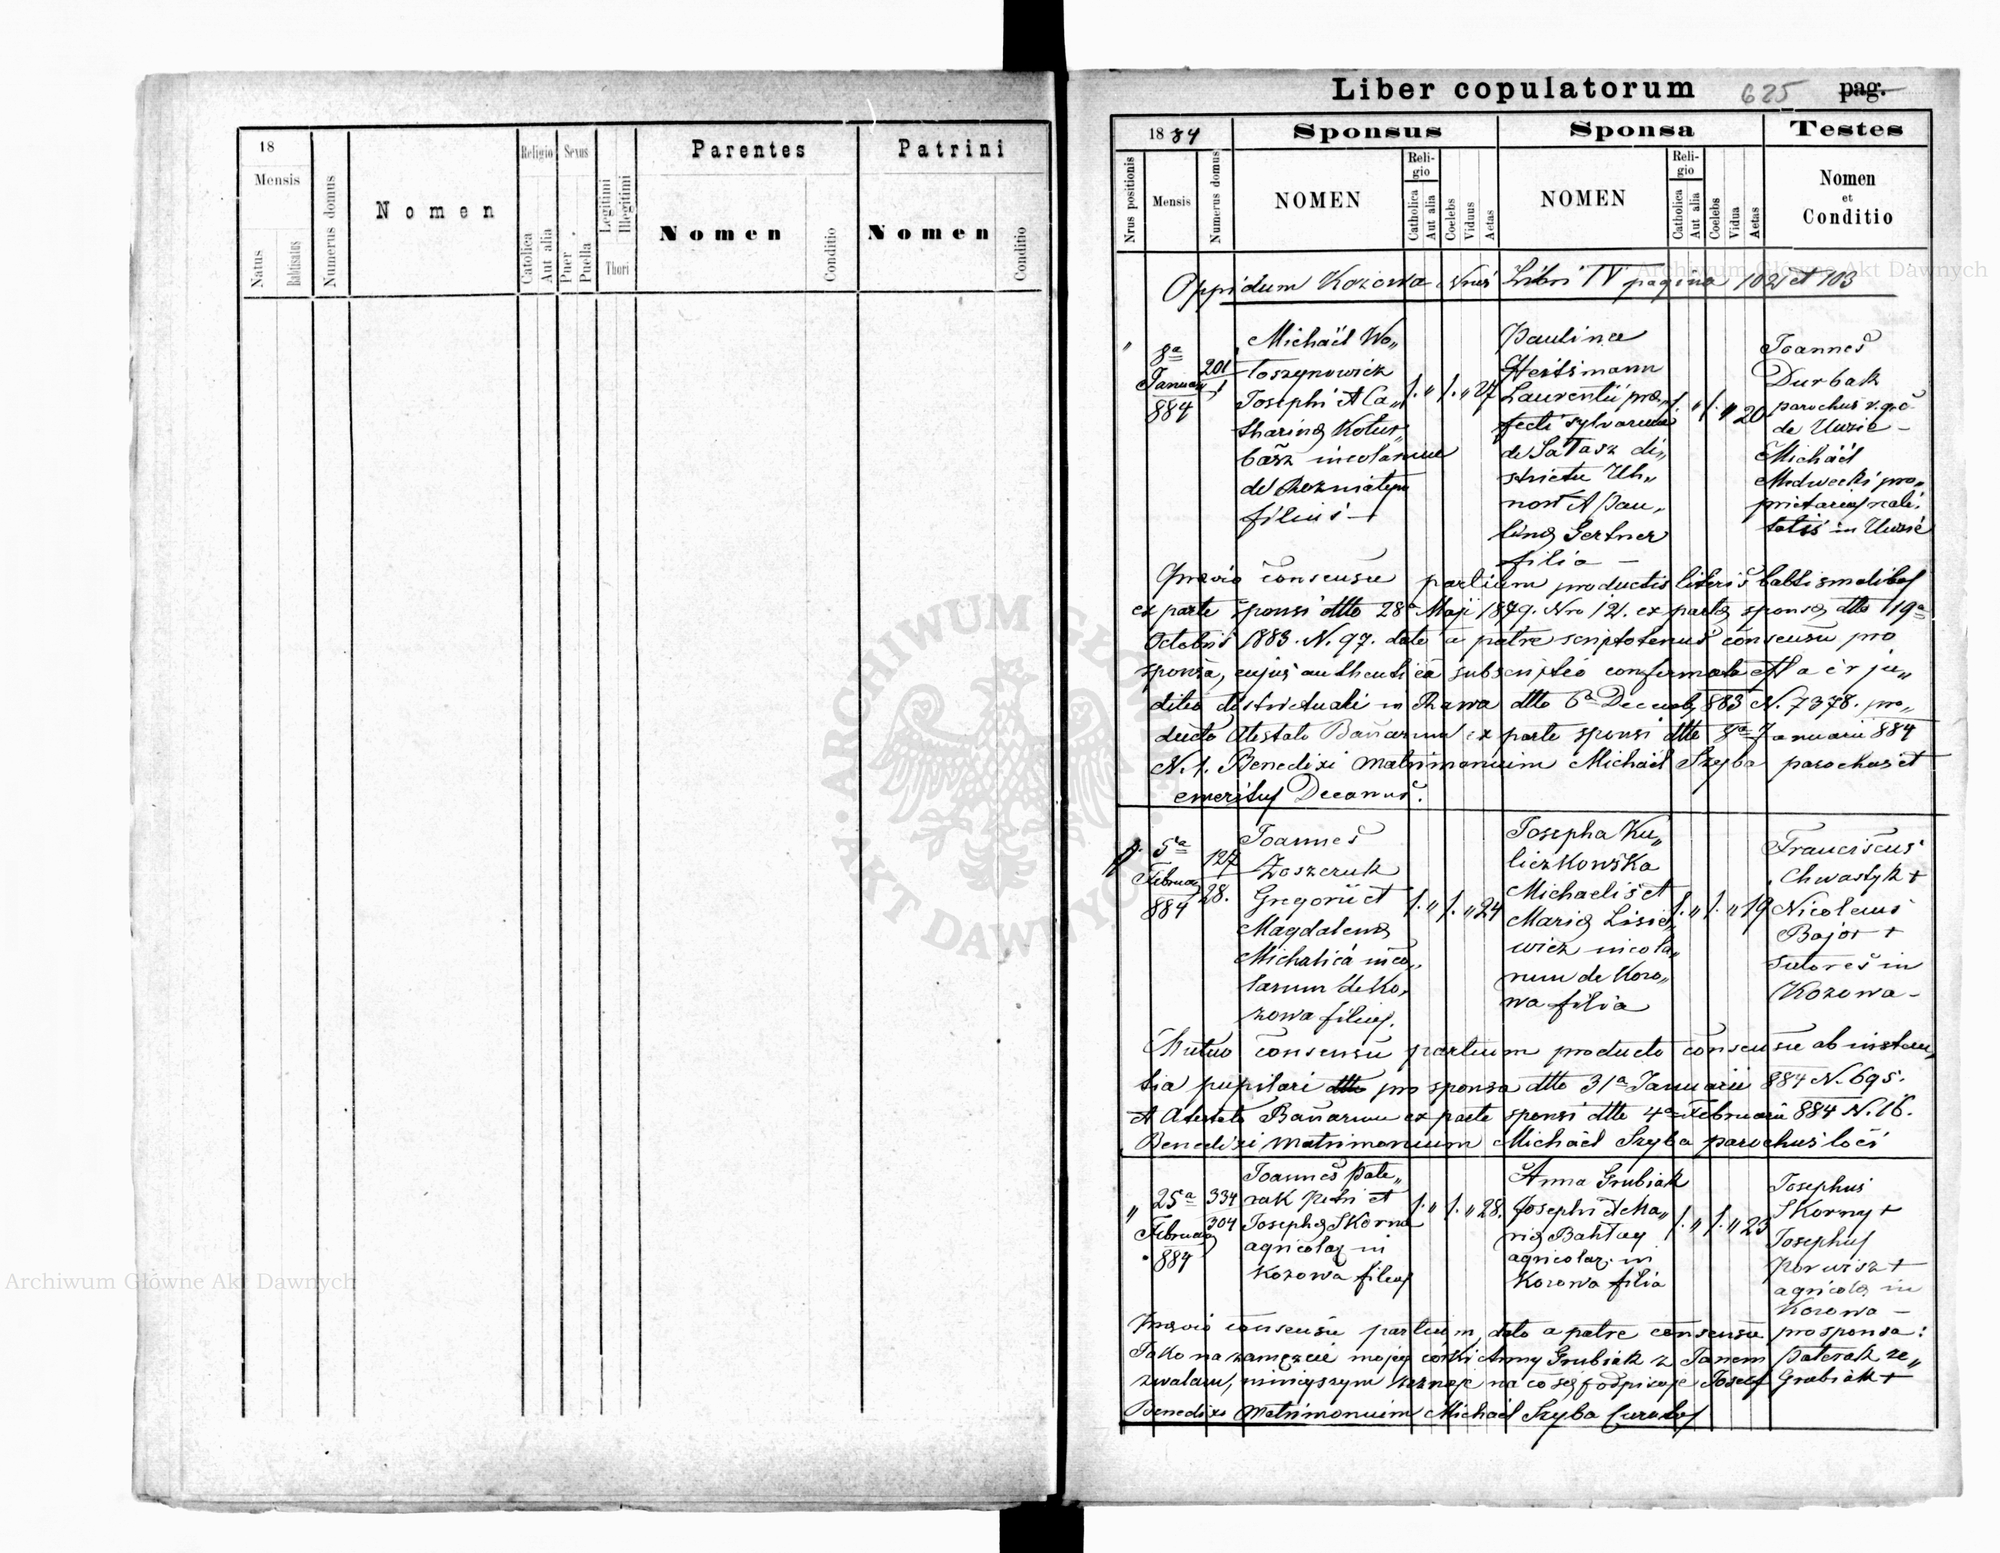 18
Mensis
Natus
Babtisatus
Numerus domus
Nomen
Religio
Catolica
Aut alia
Sexus
Puer
Puella
Legitimi
Illegitimi
Thori
Parentes
Nomen
Conditio
Patrini
Nomen
Conditio
Liber copulatorum 625 pag.
1884
Sponsus
Sponsa
Testes
Nrus positionis
Mensis
Numerus domus
NOMEN
Religio
Catholica
Aut alia
Coelebs
Viduus
Aetas
NOMEN
Religio
Catholica
Aut alia
Coelebs
Vidua
Aetas
Nomen
et
Conditio
Oppidum Kozowa Libri IV pagina 102 et 103
8a
Januar
884
201
1
Michaël Wo„
łoszynowicz
Josephi et Ca„
tharinæ
incolarum
de Rozniatyn
filius
1. „ 1. „ 27
Paulina
Laurentii præ„
fecti sylvarum
de Sałasz di„
strictu Uh„
now et Pau„
linæ Gertner
filia —
1. „ 1. „ 20
Joannes
Durbak
parochus r. g. c.
de
Michaël
Medwecki pro„
prietarius reali„
tatis in
Prævio consensu partium productis literis babtismalibus
ex parte sponsi dtto 28a Maji 1879. Nro 121. ex parte sponsæ dtto 19a
Octobris 1883. N. 97. dato a patre scriptotenus consensu pro
sponsa, cujus authentica subscriptio confirmata est a c. r ju„
ditio districtuali in Rawa dtto 6a Decemb 883 N. 7378. pro„
ducto Atestato Bannarum ex parte sponsi dtto 8a Januarii 884
N. 1. Benedixi matrimonium Michaël Szyba parochus et
emeritus Decanus.
5a
Februar
884
127
28.
Joannes
Zoszczuk
Gregorii et
Magdalenæ
Michalicá inco„
larum de Ko„
zowa filius.
1. „ 1. „ 24
Josepha Ku„
liczkowska
Michaelis et
Mariæ Lisie„
wicz incola„
rum de Kozo„
wa filia
1. „ 1. „ 19
Franciscus
Chwastyk +
Nicolaus
Bajor +
sutores in
Kozowa –
Mutuo consensu partium producto consensu ab instan„
tia pupilari dtto pro sponsa dtto 31a Januarii 884 N. 695.
et Atestato Bannarum ex parte sponsi dtto 4a Februarii 884 N. 16.
Benedixi matrimonium Michaël Szyba parochus loci
„
25a
Februar
884
334
304
Joannes Pate„
rak Petri et
Josephæ Skorna
agricolæ in
Kozowa filius
1. „ 1. „ 28.
Anna Grubiak
Josephi et Ma„
riæ Bahtay
agricolæ in
Kozowa filia
1. „ 1. „ 23
Josephus
Skorny +
Josephus
Porwisz +
agricolæ in
Kozowa –
Prævio consensu partium, dato a patre consensu pro sponsa:
Jako na zamęzcie mojej córki Anny Grubiak z Janem Paterak ze„
zwalam, niniejszym zeznaje na co sę podpisuje Josef Grubiak +
Benedixi matrimonium Michaël Szyba Curatus
ARCHIWUM GŁÓWNE AKT DAWNYCH
Archiwum Główne Akt Dawnych
Archiwum Główne Akt Dawnych